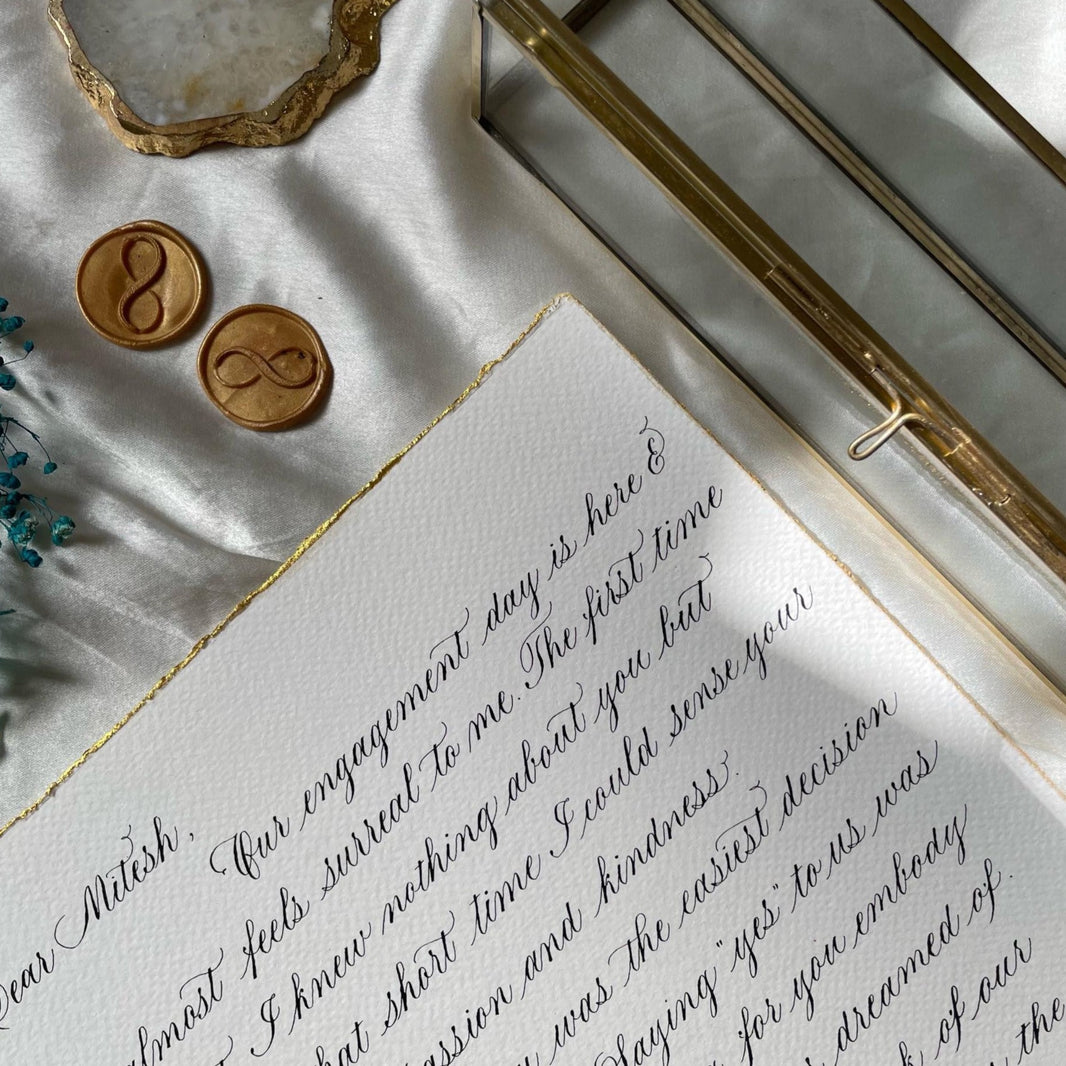 Dear Mitesh,
Our engagement day is here &
almost feels surreal to me. The first time
I knew nothing about you but
that short time I could sense your
passion and kindness.
was the easiest decision
Saying "yes" to us was
for you embody
dreamed of.
of our
the